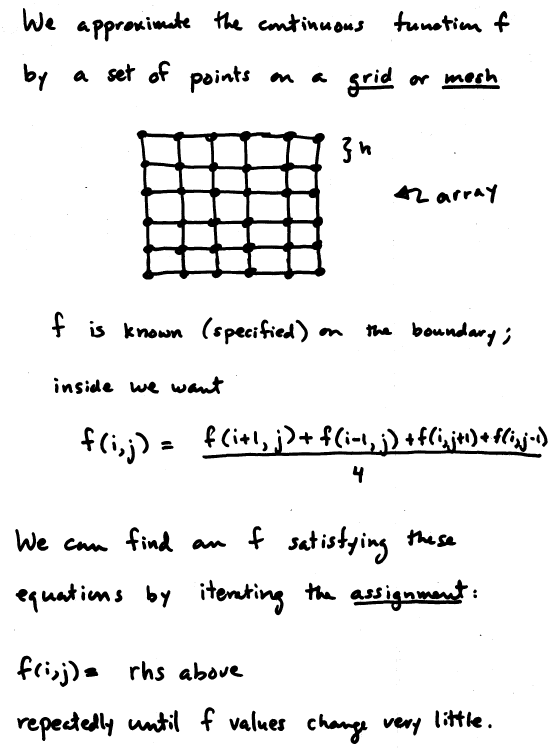 We approximate the continuous function f
by a set of points on a grid or mesh
} h
array
f is known (specified) on the boundary;
inside we want
f(i,j) = f(i+1, j) + f(i-1, j) + f(i,j+1) + f(i,j-1)
4
We can find an f satisfying these
equations by iterating the assignment:
f(i,j) = rhs above
repeatedly until f values change very little.